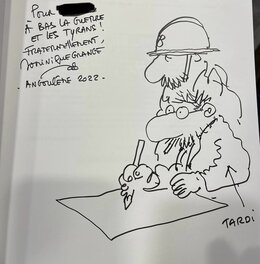 Pour
À BAS LA GUERRE
ET LES TYRANS !
FRATERNELLEMENT,
DOMINIQUE GRANGE
ANGOULÊME 2022.
TARDI